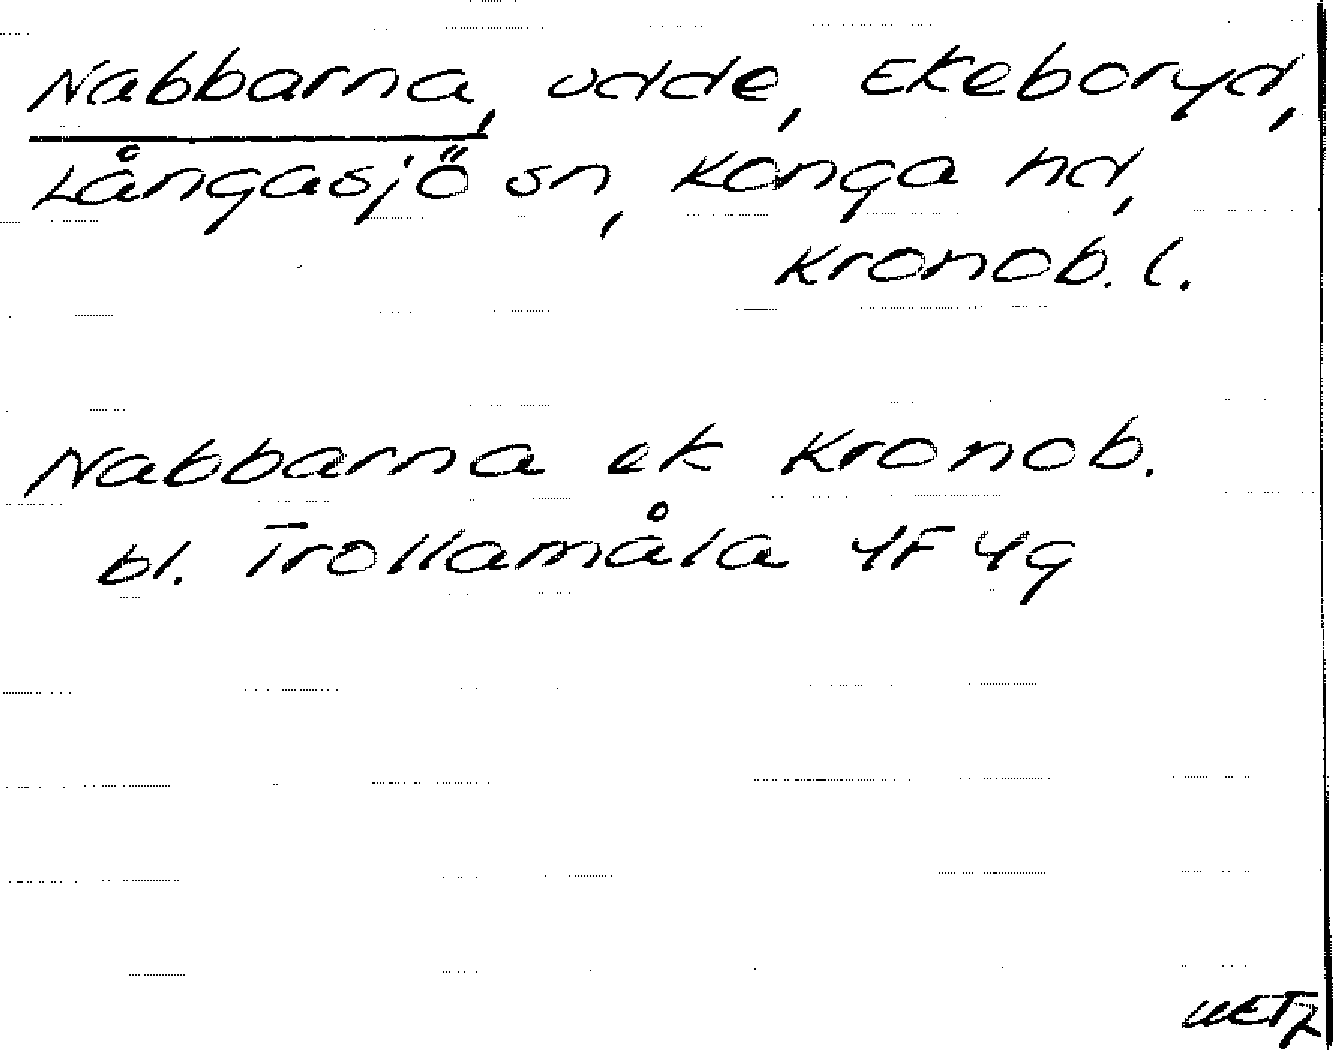 Nabbarna, udde, Ekeboryd,
Långasjö sn, Konga hd,
Kronob. l.
Nabbarna ek Kronob.
bl. Trollamåla 4F 4g